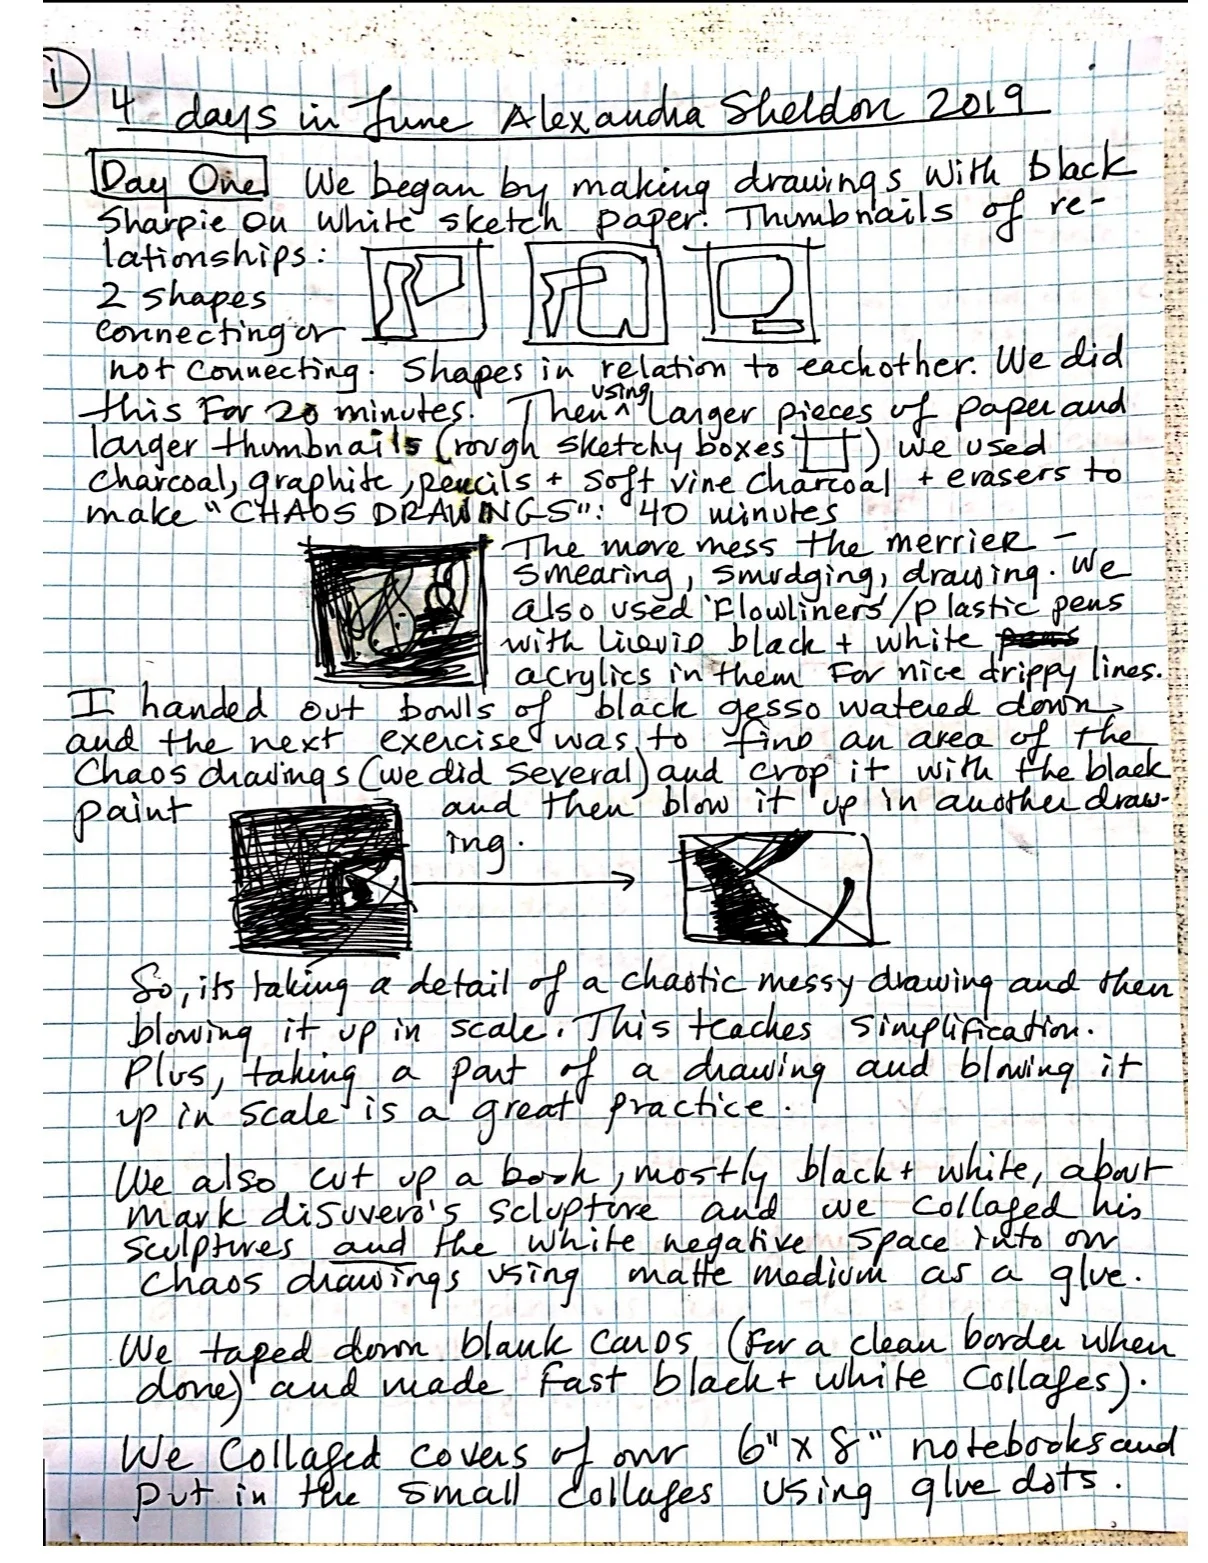 1
4 days in June Alexandra Sheldon 2019
Day One We began by making drawings with black
Sharpie on white sketch paper. Thumbnails of re-
lationships:
2 shapes
connecting or
not connecting. Shapes in relation to eachother. We did
this for 20 minutes. Then using larger pieces of paper and
larger thumbnails (rough sketchy boxes ) we used
charcoal, graphite, pencils + soft vine charcoal + erasers to
make "CHAOS DRAWINGS": 40 minutes
The more mess the merrier -
smearing, smudging, drawing. We
also used 'Flowliners'/plastic pens
with liquid black + white pens
acrylics in them for nice drippy lines.
I handed out bowls of black gesso watered down
and the next exercise was to find an area of the
Chaos drawings (we did several) and crop it with the black
paint and then blow it up in another draw-
ing.
So, its taking a detail of a chaotic messy drawing and then
blowing it up in scale. This teaches simplification.
Plus, taking a part of a drawing and blowing it
up in scale is a great practice.
We also cut up a book, mostly black + white, about
mark disuvero's sclupture and we collaged his
sculptures and the white negative space into our
chaos drawings using matte medium as a glue.
We taped down blank cards (for a clean border when
done) and made fast black + white collages).
We collaged covers of our 6" x 8" notebooks and
put in the small collages using glue dots.